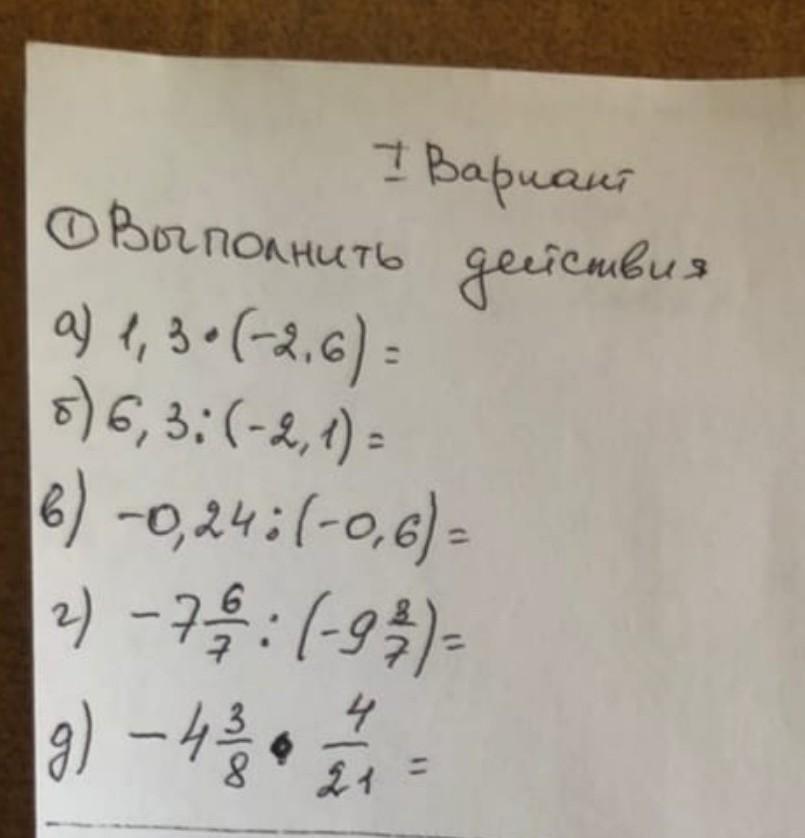 I Вариант
① Выполнить действия
а) 1,3 • (-2,6) =
б) 6,3 : (-2,1) =
в) -0,24 : (-0,6) =
г) -7 6/7 : (-9 3/7) =
д) -4 3/8 • 4/21 =